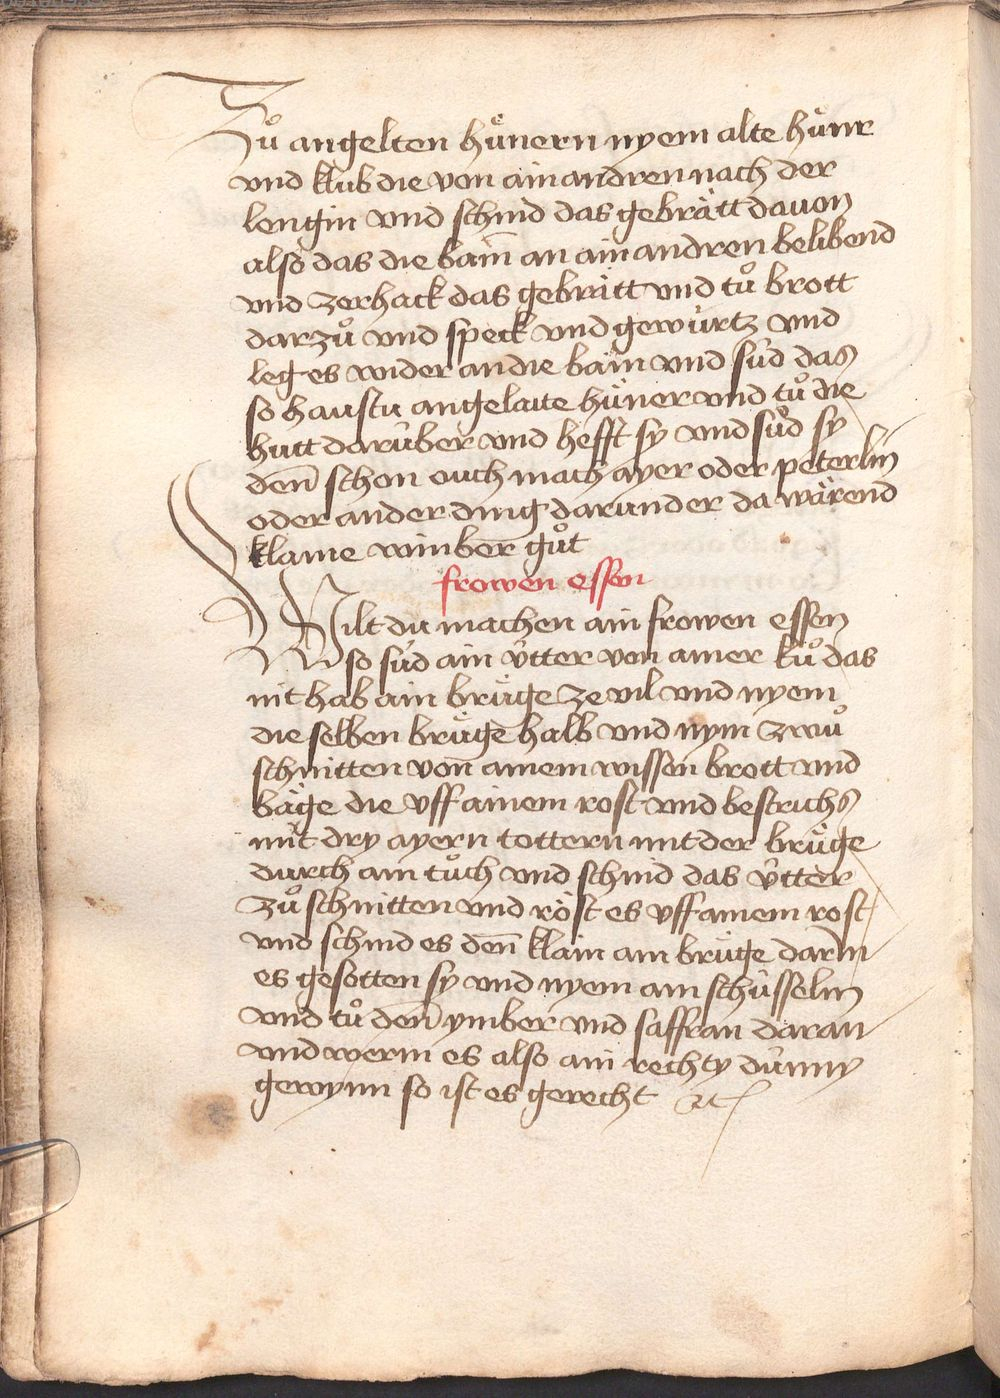 Zuͦ angelten huͤnern nyem alte huͤnr
vnd klub die von ainandren nach der
lengin vnd schnid das gebraͤtt dauon
also das die bain̄ an ainandren belibend
vnd zerhack das gebraͤtt vnd tuͦ brott
darzuͦ vnd speck vnd gewürtz vnd
leg es wider an die bain vnd süd das
so haustu angelaite huͤner vnd tuͦ die
hutt darüber vnd hefft sy vnd süd sy
den̄ schon ouch mach ayer oder peterlin
oder ander ding darunder da wärend
klaine winber̄ guͦt
frowen essen
Wilt du machen ain frowen essen
so süd ain ütter von ainer kuͦ das
nit hab ain bruͤge ze vil vnd nyem
die selben bruͤge halb vnd nym zwuͦ
schnitten von ainem wissen brott vnd
bäge die vff ainem rost vnd bestrichs
mit dry ayern tottern mit der bruͤge
durch ain tuͦch vnd schnid das ütter
zuͦ schnitten vnd röst es vff ainem rost
vnd schnid es den̄ klain ain bruͤge darin
es gesotten sy vnd nyem ain schüsselin
vnd tuͦ den̄ ymber vnd saffran daran
vnd werm es also ain rechty dünny
gewynn so ist es gerecht ⁊c